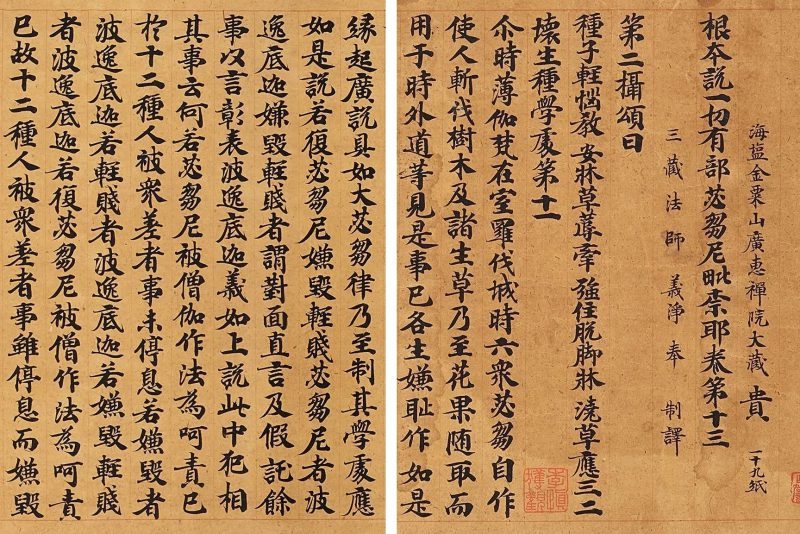 海塩金粟山廣惠禪院大藏 貴 一十九紙
根本說一切有部苾芻尼毗柰耶卷第十三
三藏法師義淨奉 制譯
第二攝頌曰
種子軽惱教 安牀草蓐牽 強住脱脚牀 澆草應三二
壞生種學處第十一
尒時薄伽梵在室羅伐城時六衆苾芻自作
使人斬伐樹木及諸生草乃至花果随取而
用于時外道等見是事已各生嫌耻作如是
緣起廣說具如大苾芻律乃至制其學處應
如是說若復苾芻尼嫌毀軽賤苾芻尼者波
逸底迦嫌毀軽賤者謂對面直言及假託餘
事以言彰表波逸底迦義如上說此中犯相
其事云何若苾芻尼被僧伽作法為呵責已
於十二種人被衆差者事未停息若嫌毀者
波逸底迦若軽賤者波逸底迦若嫌毀軽賤
者波逸底迦若復苾芻尼被僧作法為呵責
已故十二種人被衆差者事雖停息而嫌毀